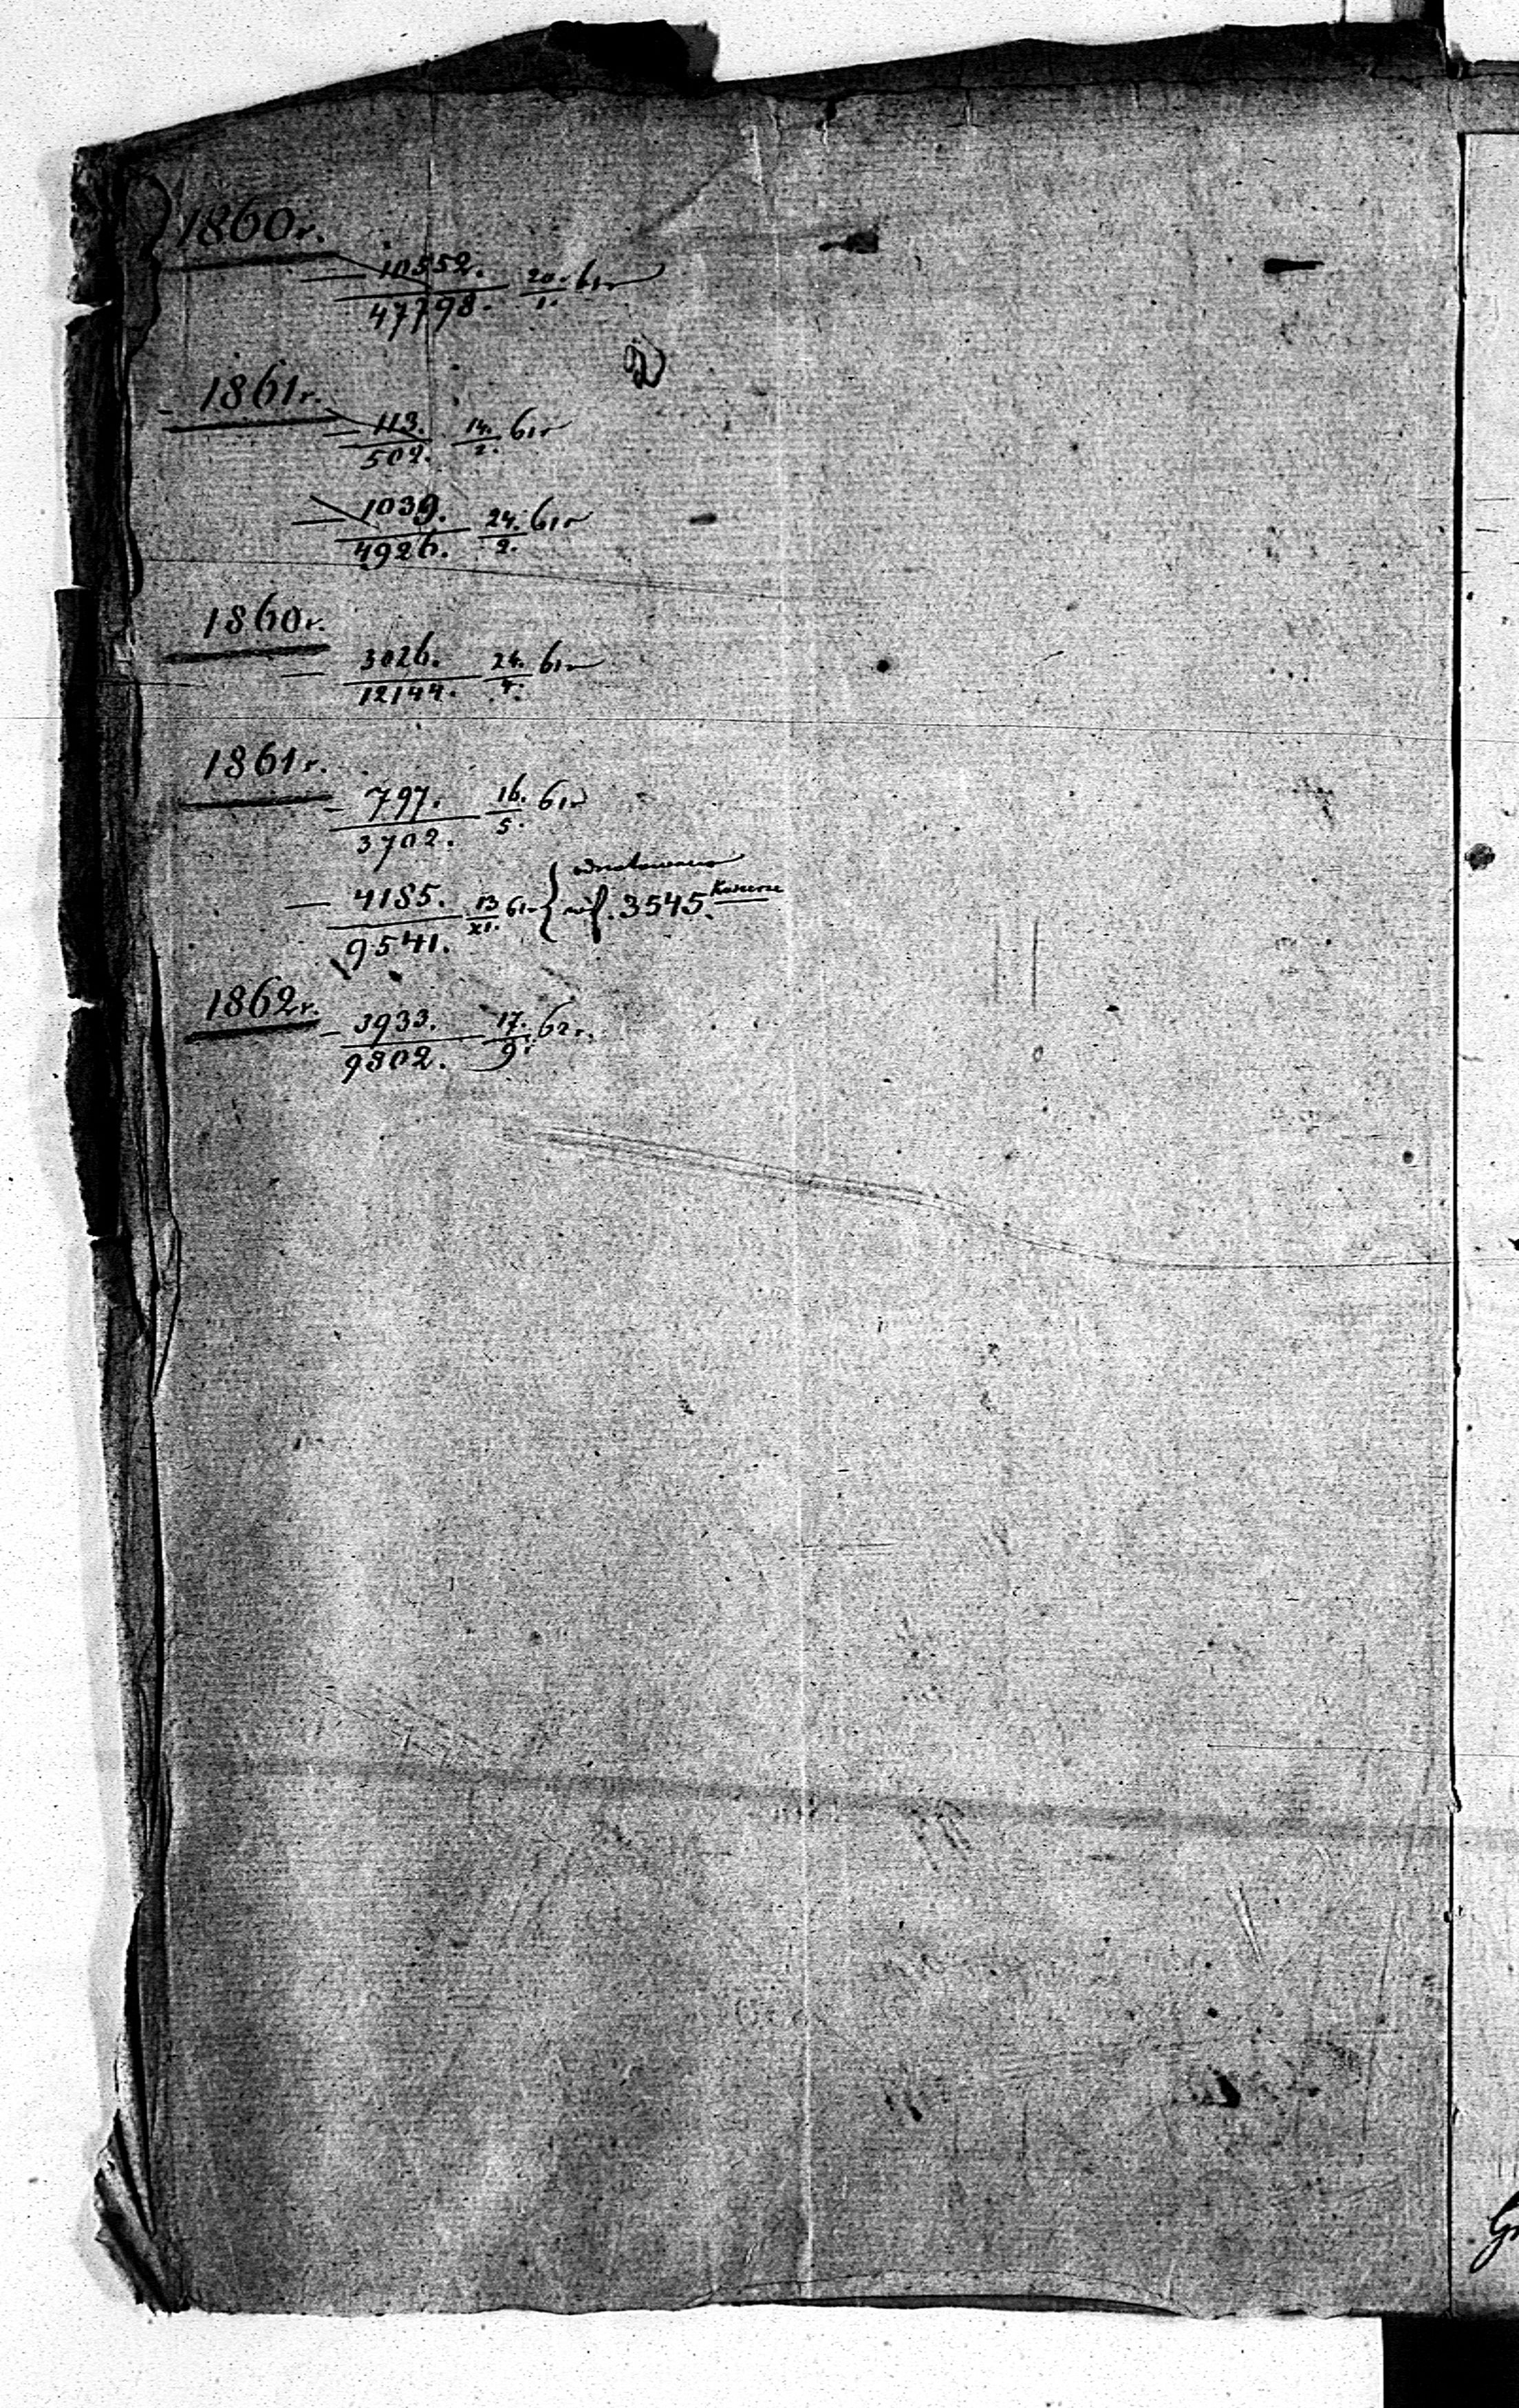 1860 r.
— 10552. / 47798. 20. / 1. 61 r
1861 r.
— 113. / 502. 14. / 2. 61 r
— 1039. / 4926. 24. / 2. 61 r
1860 r.
— 3026. / 12144. 24. / 4. 61 r
1861 r.
— 797. / 3702. 16. / 5. 61 r
— 4185. / 9541. 13 / XI. 61 r { 3545.
1862 r.
— 3933. / 9802. 17. / 9. 62 r.